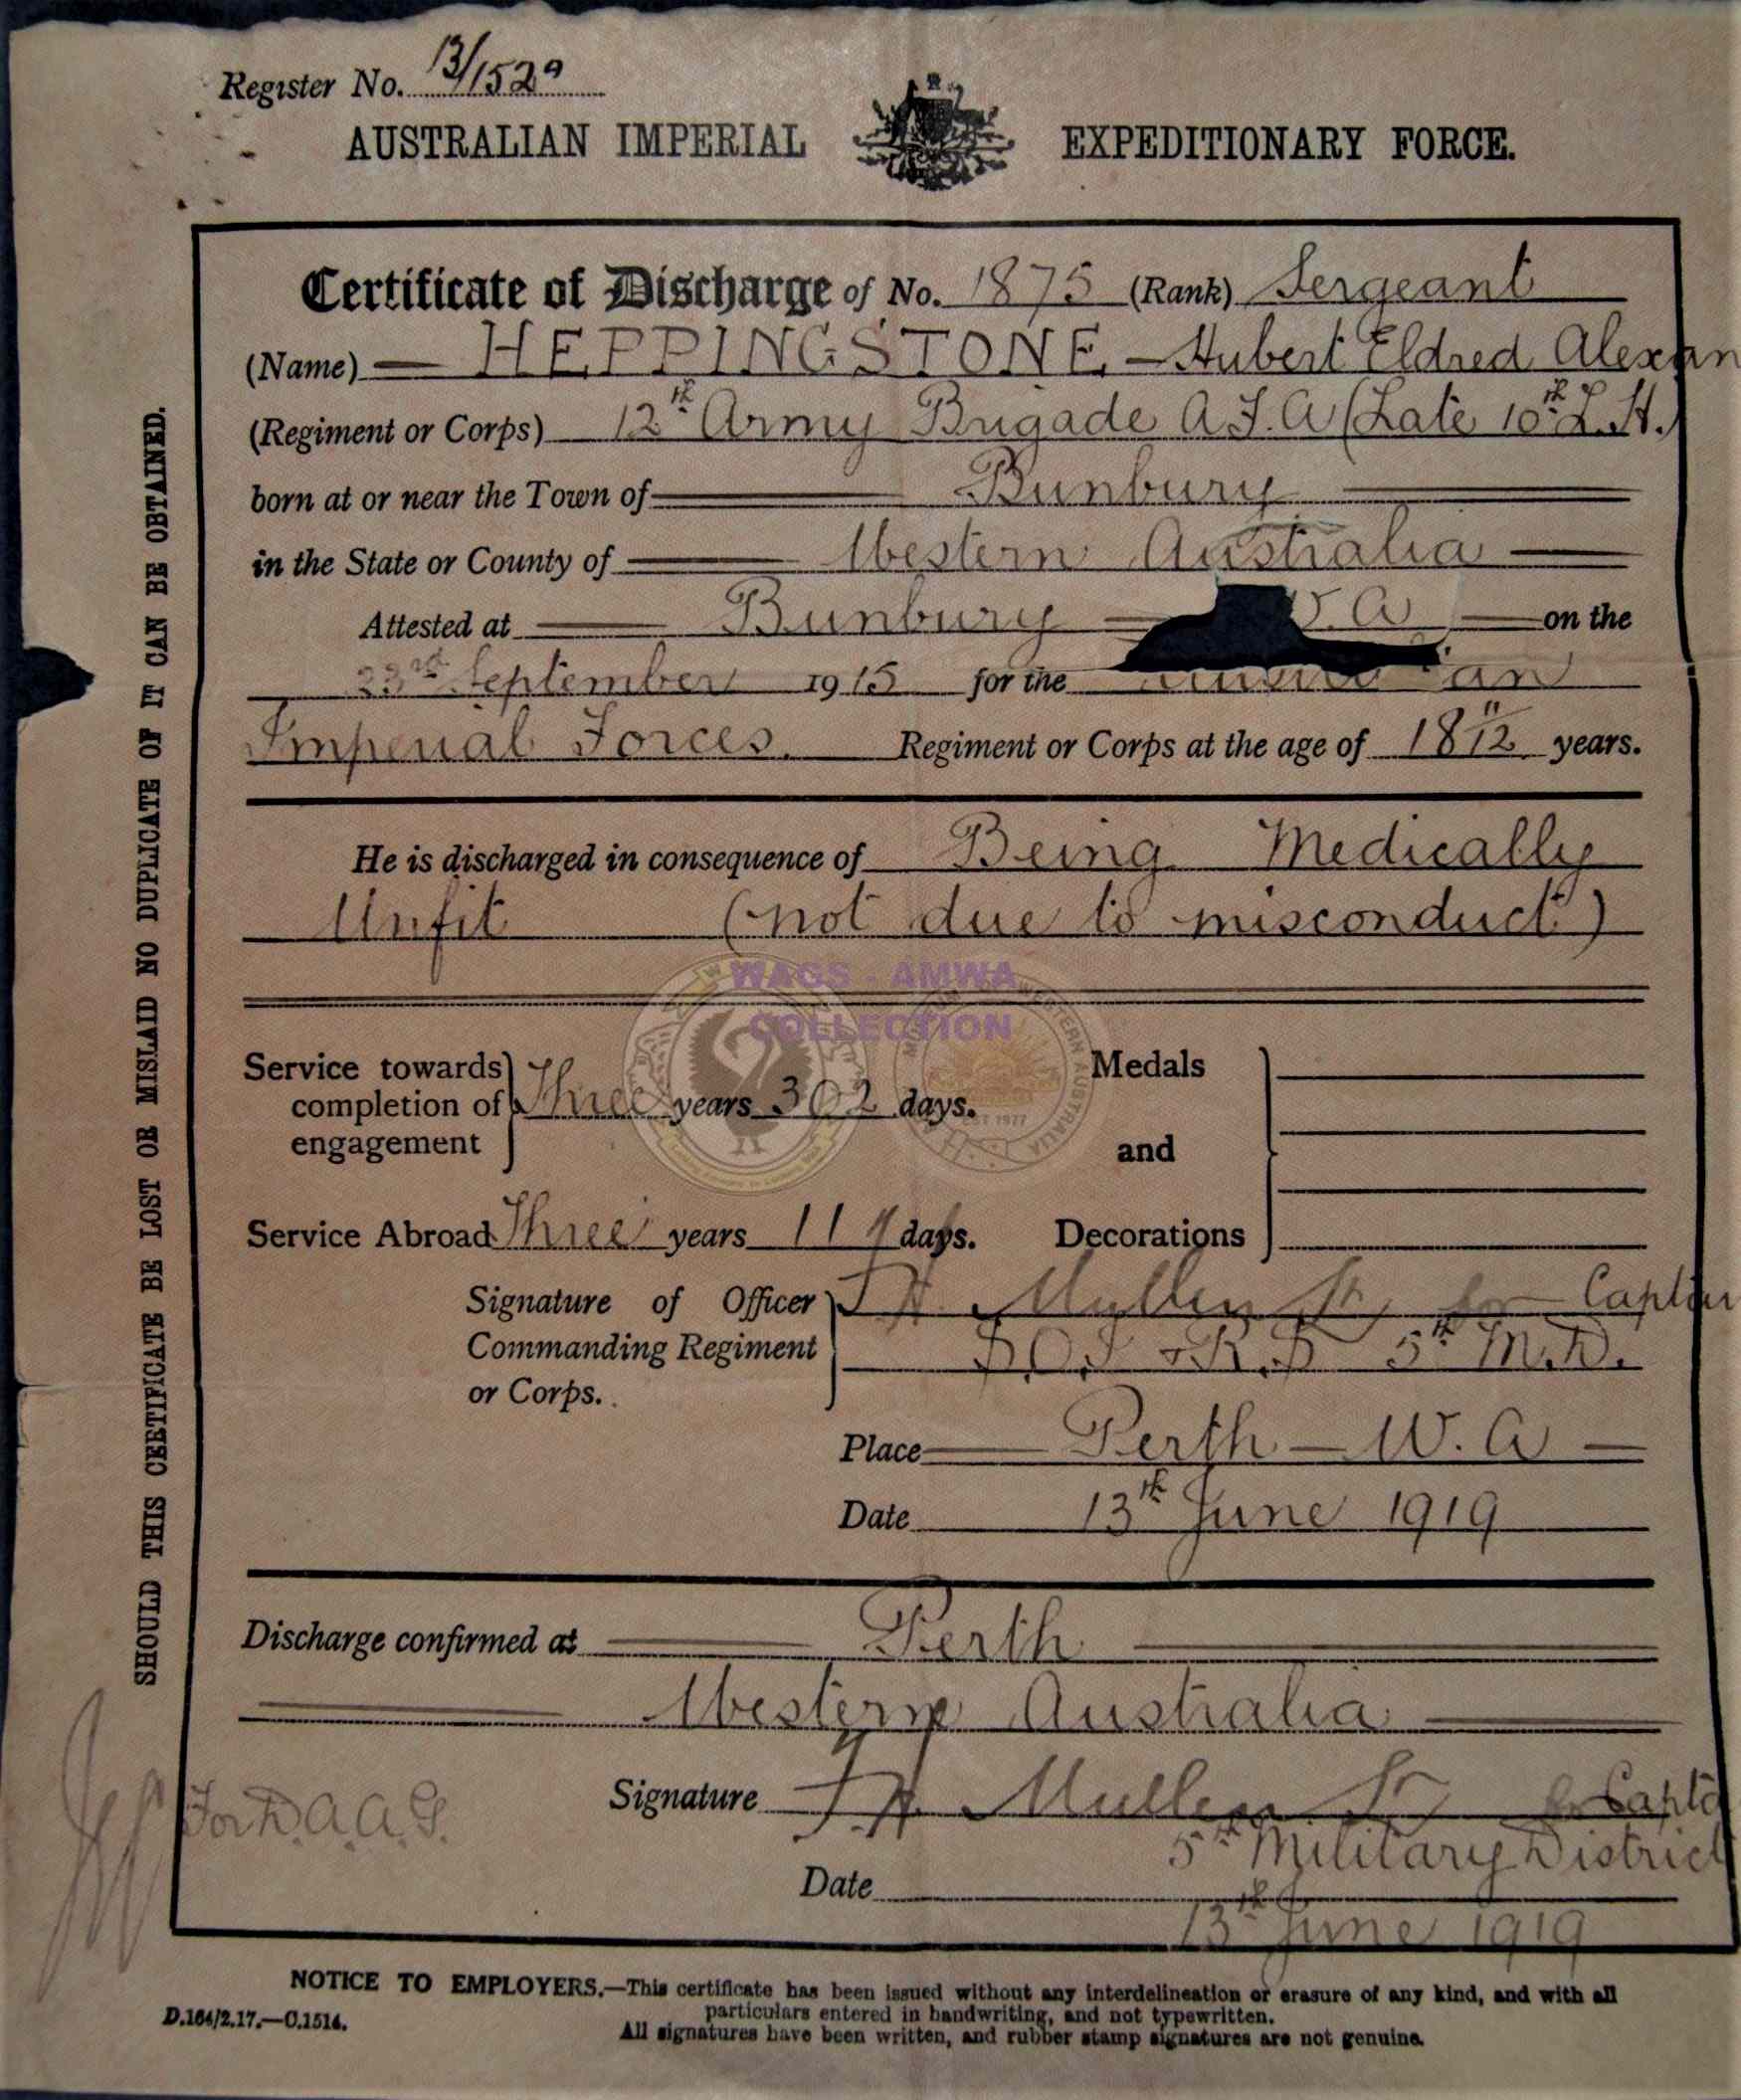 Register No. 13/1529
AUSTRALIAN IMPERIAL EXPEDITIONARY FORCE.
Certificate of Discharge of No. 1875 (Rank) Sergeant
(Name) — HEPPINGSTONE — Hubert Eldred Alexan
(Regiment or Corps) 12th Army Brigade A.F.A (Late 10th L.H.)
born at or near the Town of Bunbury
in the State or County of Western Australia
Attested at Bunbury W.A on the
23rd September 1915 for the
Imperial Forces. Regiment or Corps at the age of 18 11/12 years.
He is discharged in consequence of Being Medically
Unfit (not due to misconduct)
WAGS - AMWA
COLLECTION
Service towards completion of engagement Three years 302 days.
Medals
and
Decorations
Service Abroad Three years 117 days.
Signature of Officer Commanding Regiment or Corps. Mullen for Captain
5th M.D.
Place Perth — W.A —
Date 13th June 1919
Discharge confirmed at Perth
Western Australia
Signature Mullen for Capt
5th Military District
For D.A.A.G.
Date 13th June 1919
SHOULD THIS CERTIFICATE BE LOST OR MISLAID NO DUPLICATE OF IT CAN BE OBTAINED.
NOTICE TO EMPLOYERS.—This certificate has been issued without any interdelineation or erasure of any kind, and with all
particulars entered in handwriting, and not typewritten.
All signatures have been written, and rubber stamp signatures are not genuine.
D.164/2.17.—C.1514.